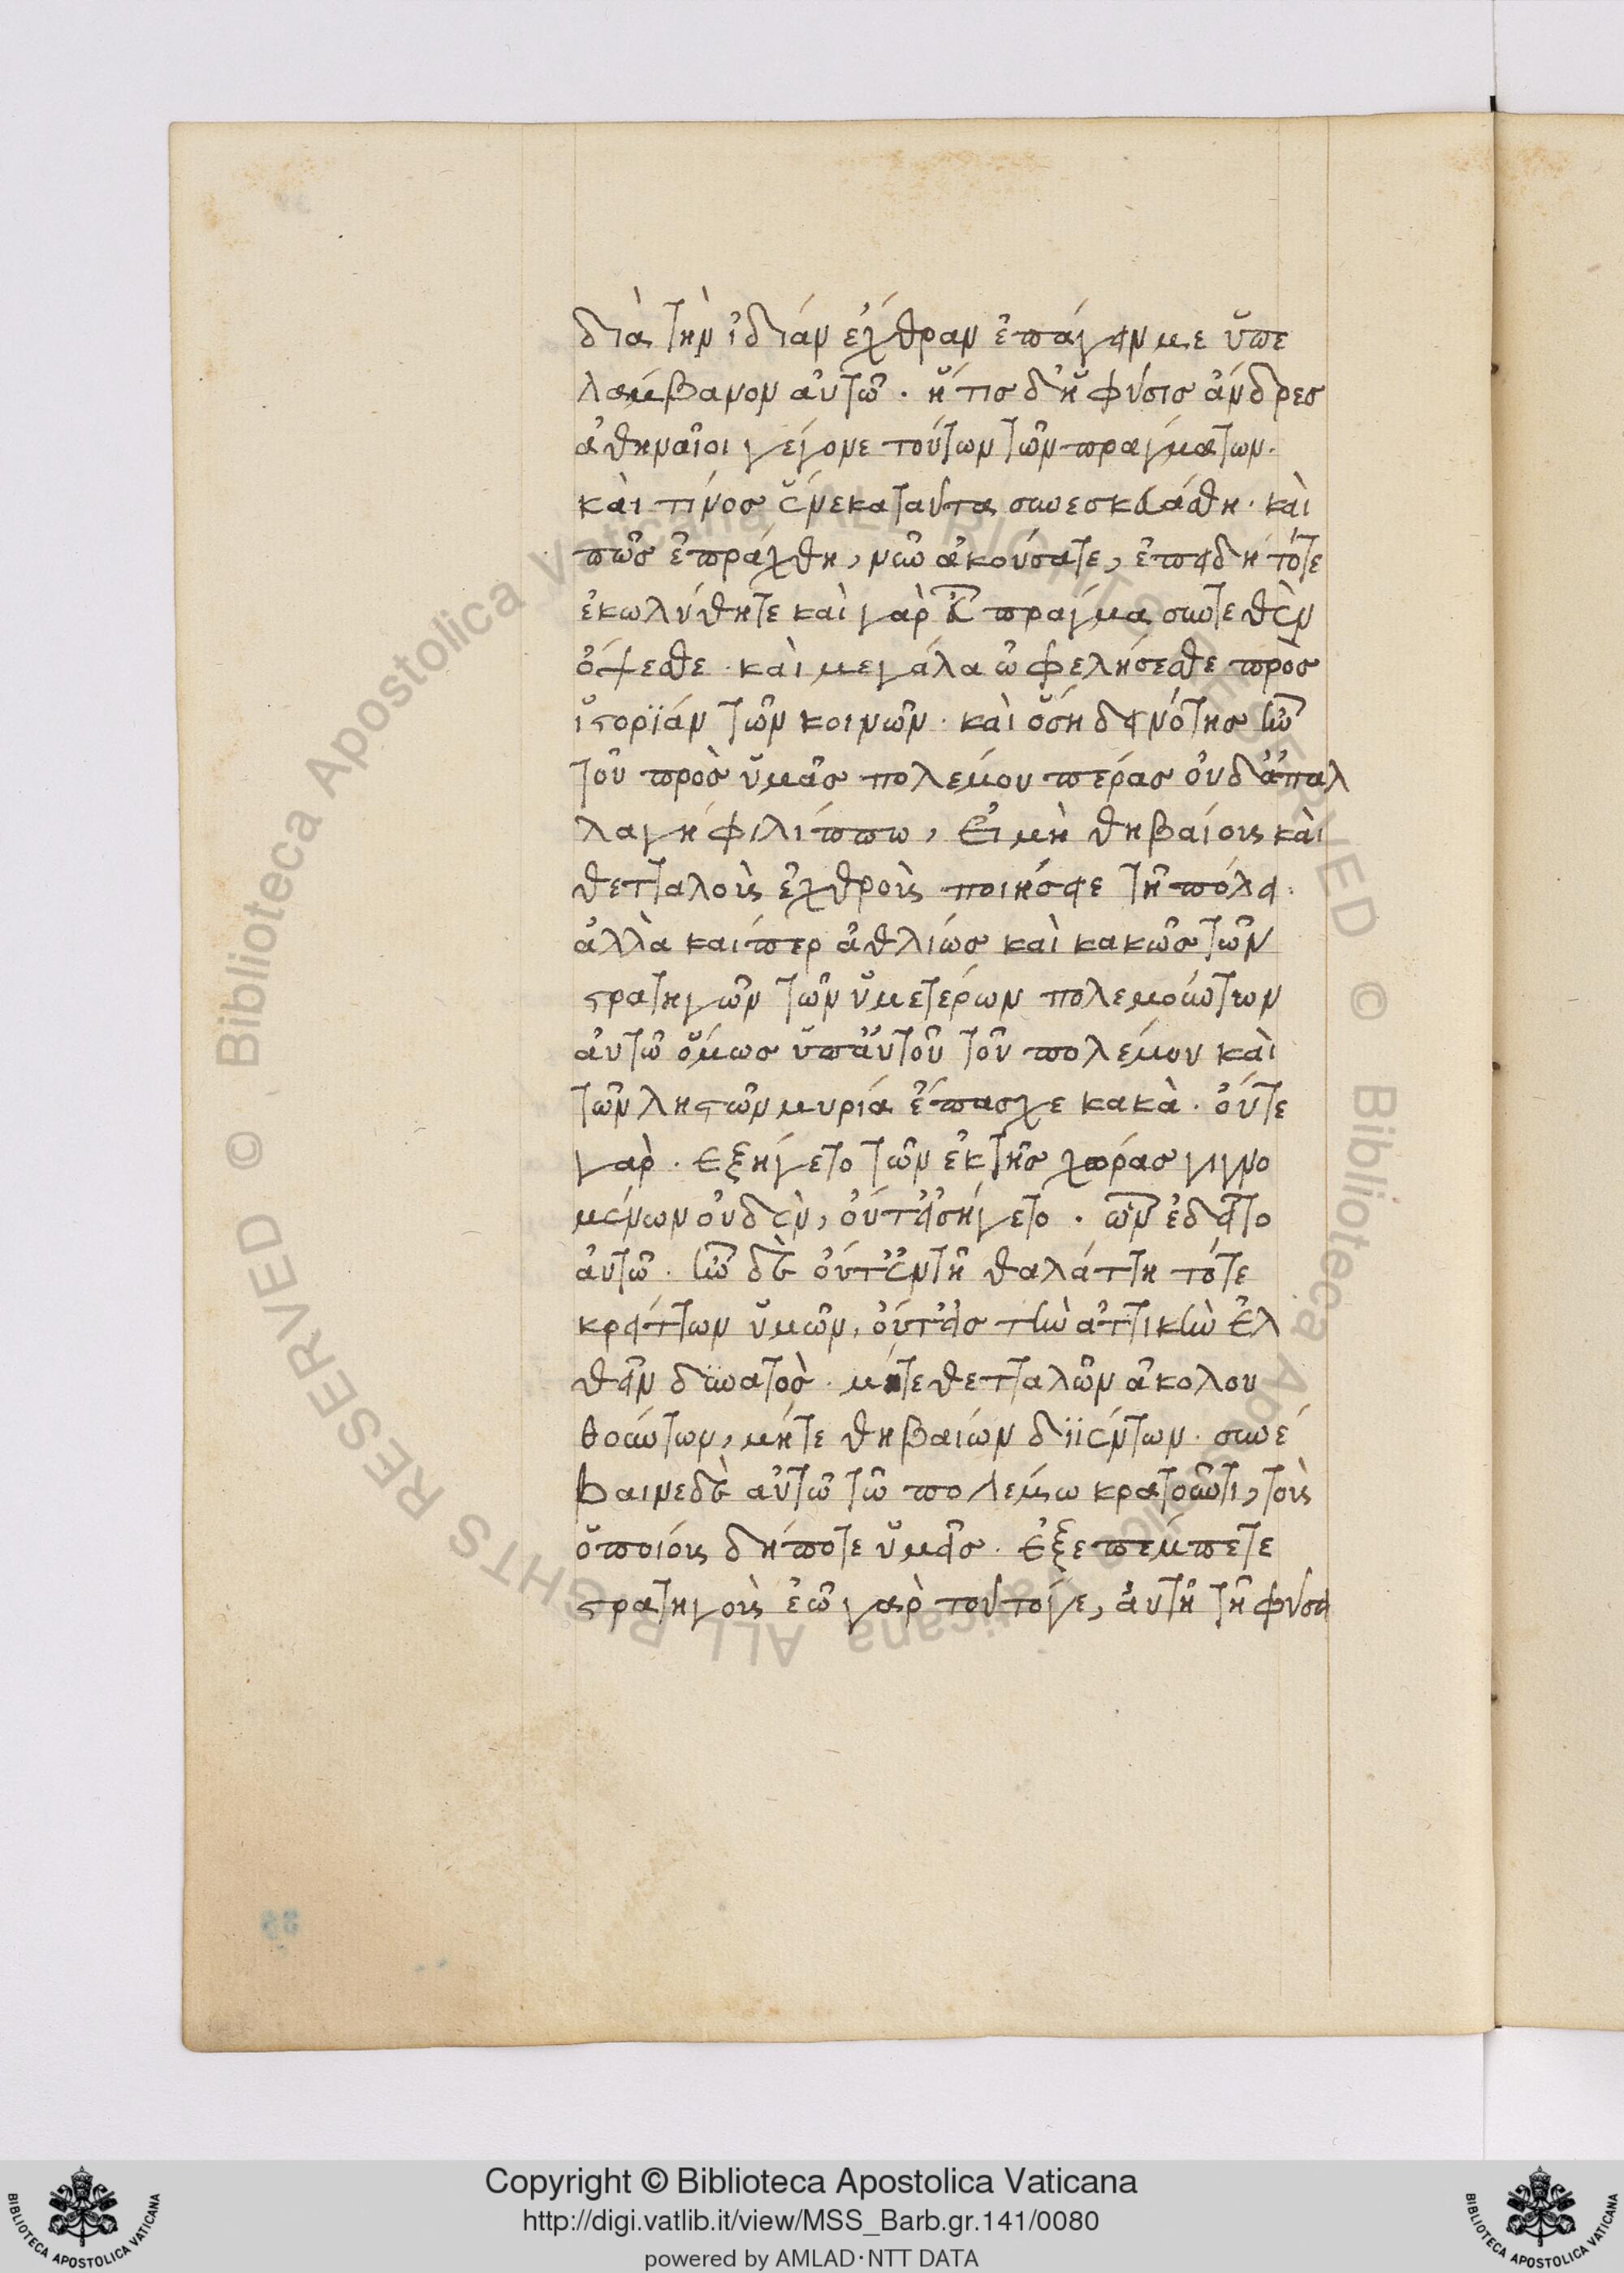 διὰ τὴν ἰδιάν ἐχθραν ἐπάγειν με ὑπε
λάμβανον αὐτῶ. ἥ τις δ' ἡ φύσις ἄνδρες
ἀθηναῖοι γέγονε τούτων τῶν πραγμάτων.
καὶ τίνος ἕνεκα ταῦτα συνεσκευάσθη. καὶ
πῶς ἐπράχθη, νῦν ἀκούσατε, ἐπειδὴ τότε
ἐκωλύθητε καὶ γὰρ εὖ πραγμα συντεθὲν
ὄψεσθε. καὶ μεγάλα ὠφελήσεσθε πρὸς
ἱστορϊάν τῶν κοινῶν. καὶ ὅση δεινότης ἦν
τοῦ πρὸς ὑμᾶς πολέμου πέρας οὐδ' ἀπαλ
λαγή φιλίππω, εἰ μὴ θηβαίους καὶ
θετταλοὺς ἐχθροὺς ποιήσειε τῆ πόλει.
ἀλλὰ καίπερ ἀθλιώς καὶ κακῶς τῶν
στρατηγῶν τῶν ὑμετέρων πολεμούντων
αὐτῶ ὅμως ὑπ' ἀυτοῦ τοῦ πολέμου καὶ
τῶν ληστῶν μυριά ἔπασχε κακὰ. οὔτε
γὰρ. ἐξήγετο τῶν ἐκ τῆς χώρας γιγνο
μένων οὐδὲν, οὔτ' εἰσήγετο. ὧν ἐδεῖτο
ἀυτῶ. ἦν δὲ οὔτ' ἐν τῆ θαλάττη τότε
κρείττων ὑμῶν, οὔτ' εἰς τὴν ἀττικὴν ἐλ
θεῖν δϋνατὸς. μήτε θετταλῶν ἀκολου
θούντων, μήτε θηβαιών δϊϊέντων. συνέ
βαινε δὲ αὐτῶ τῶ πολέμω κρατοῦντι, τοὺς
ὁποιόυς δήποτε ὑμεῖς. ἐξεπέμπετε
στρατηγοὺς ἐῶ γὰρ τοῦτό γε, ἀυτῆ τῆ φύσει
Copyright © Biblioteca Apostolica Vaticana
http://digi.vatlib.it/view/MSS_Barb.gr.141/0080
powered by AMLAD·NTT DATA